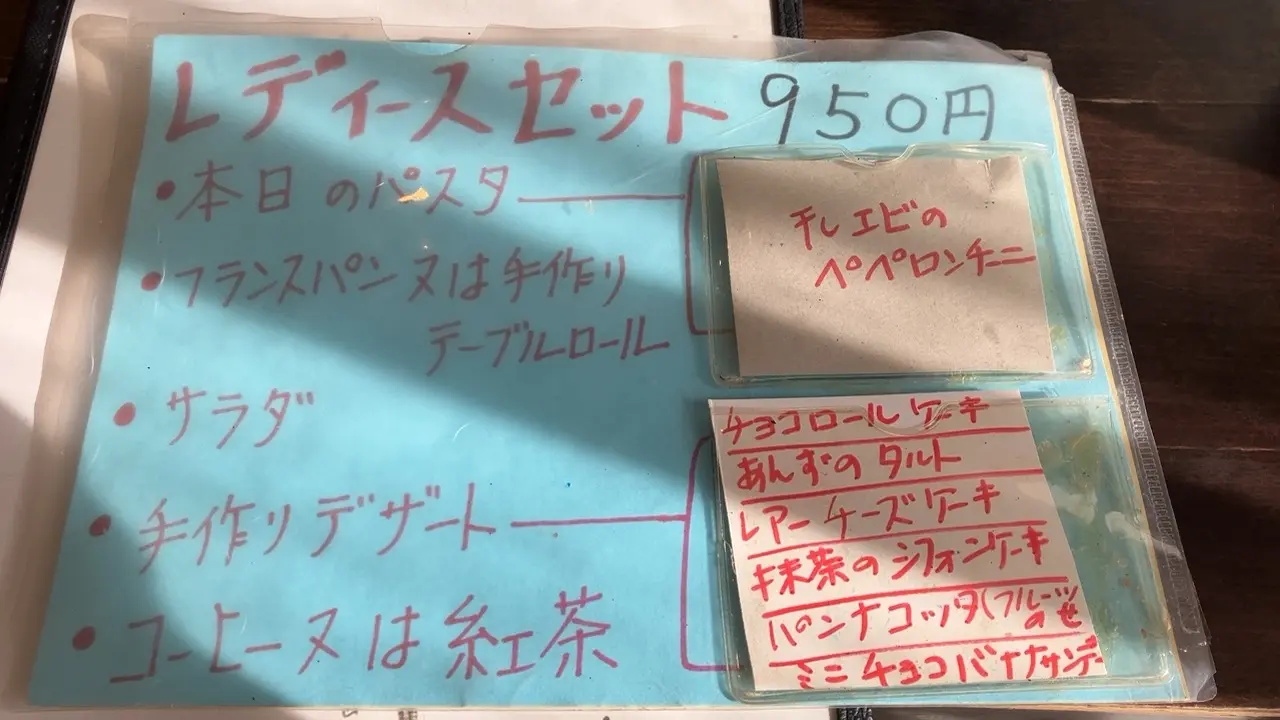 レディースセット 950円
・本日のパスタ
干しエビの
ペペロンチーニ
・フランスパン又は手作り
テーブルロール
・サラダ
・手作りデザート
チョコロールケーキ
あんずのタルト
レアーチーズケーキ
抹茶のシフォンケーキ
パンナコッタ(フルーツ
のせ
ミニチョコバナナサンデー
・コーヒー又は紅茶